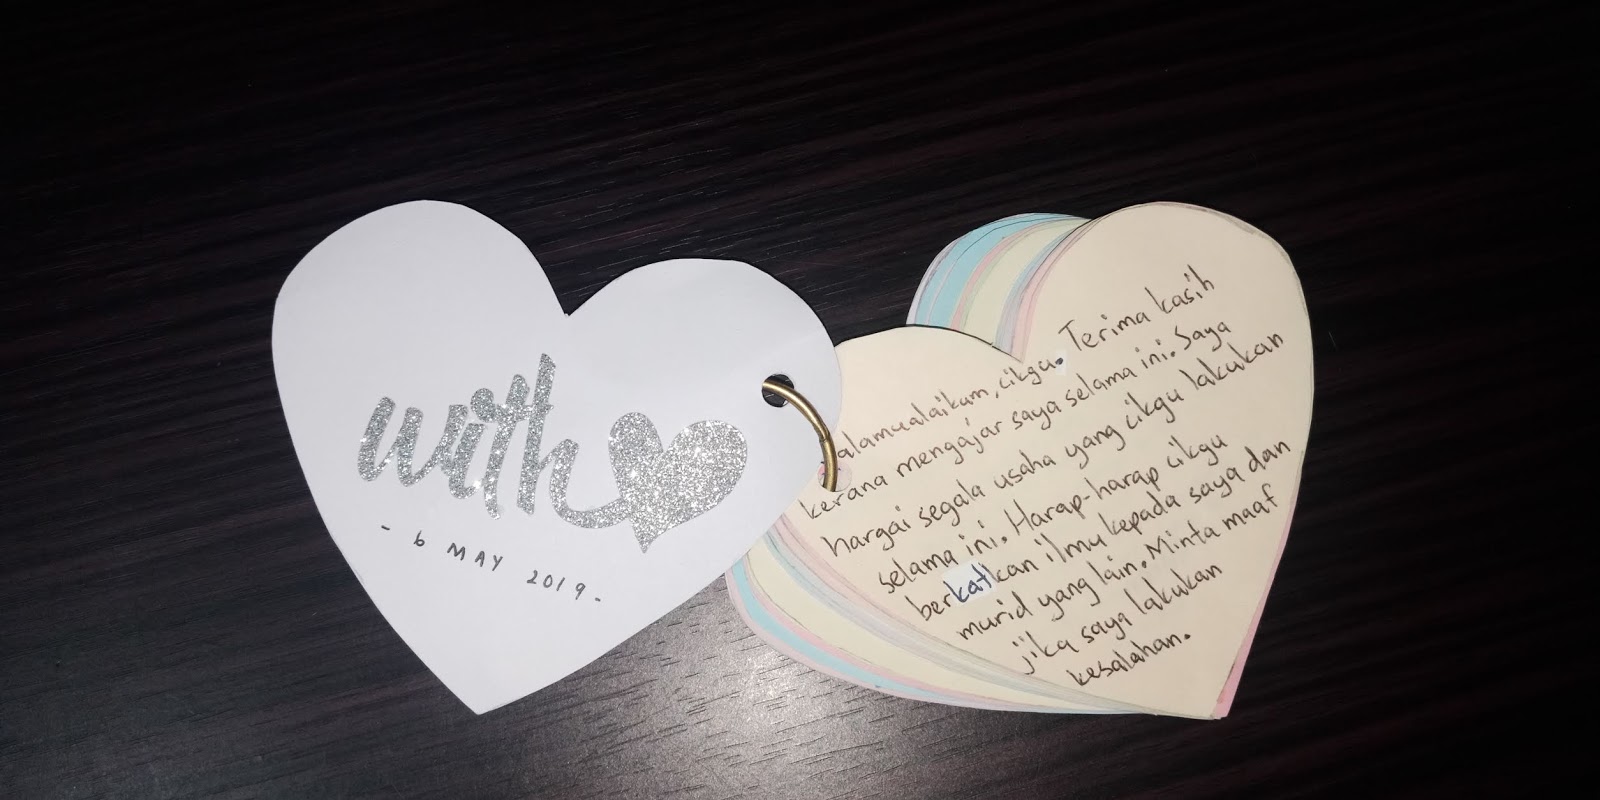 with
- 6 MAY 2019 -
alamualaikum, cikgu. Terima kasih
kerana mengajar saya selama ini. Saya
hargai segala usaha yang cikgu lakukan
selama ini. Harap-harap cikgu
berkatkan ilmu kepada saya dan
murid yang lain. Minta maaf
jika saya lakukan
kesalahan.